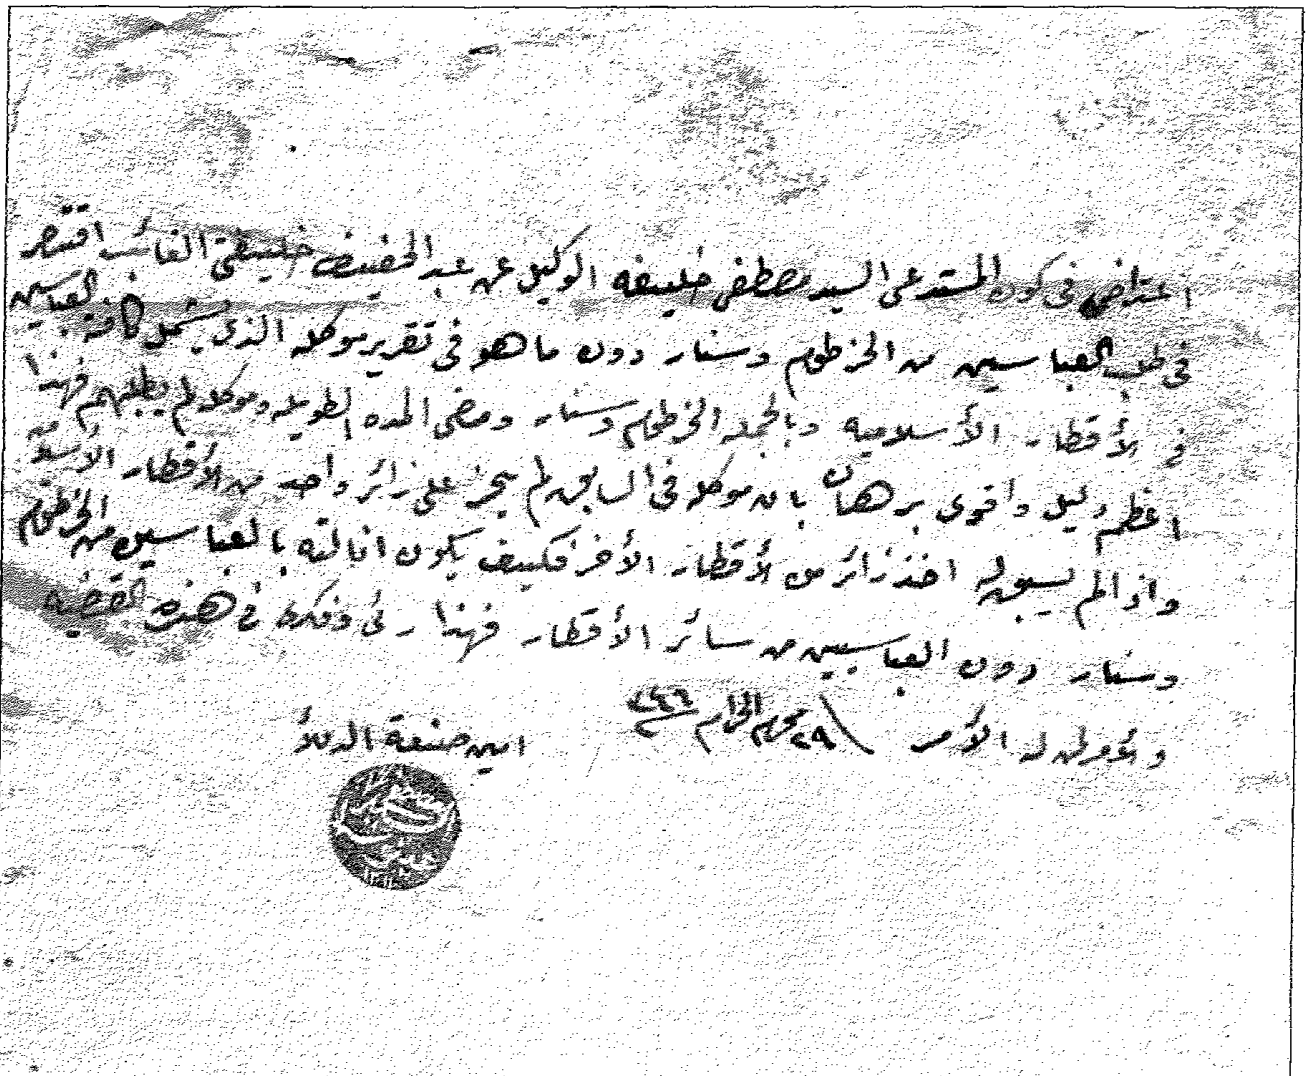 اعتراضي في كون المستدعى السيد مصطفى خليفه الوكيل عن عبد الحفيض خليفتى الغائب اقتصر
في طلب العباسيين من الخرطوم وسنار دون ما هو في تقرير موكله الذي يشمل كافة العباسيين
في الأقطار الأسلاميه وبالجمله الخرطوم وسنار ومضى المده الطويله وموكله لم يطلبهم فهذا
اعظم دليل واقوى برهان بان موكله في السابق لم يحز على زائر واحد من الأقطار الأسلا
واذا لم يسبق له اخذ زائر من الأقطار الأخر فكيف يكون انالته بالعباسيين من الخرطوم
وسنار دون العباسيين من سائر الأقطار فهذا رئى وفكرى في هذه القضيه
والأمر لمن له الأمر ٢٩ محرم الحرام ١٣٤٦
امين صنعة الدلأ